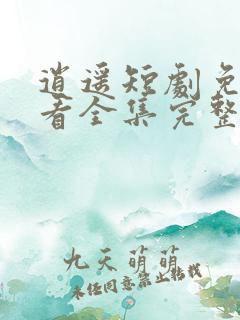 逍遥短劇免
看全集完整
九天萌萌
未经同意禁止转载